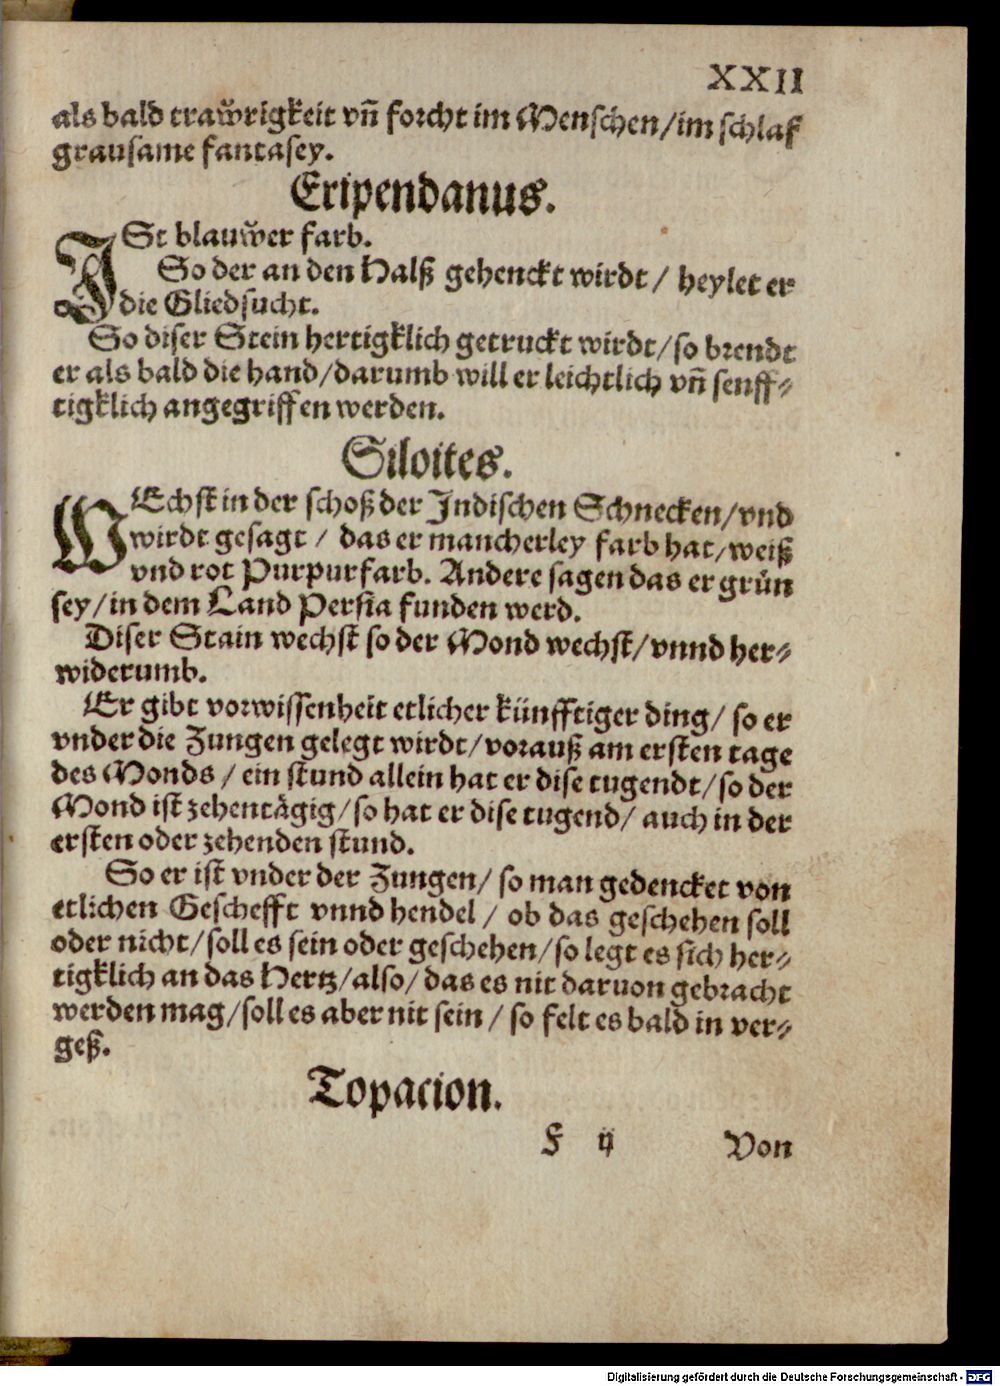 XXII
als bald trawͤrigkeit vn̄ forcht im Menschen/im schlaf
grausame fantasey.
Eripendanus.
ISt blauwͤer farb.
So der an den Halß gehenckt wirdt / heylet er
die Gliedsucht.
So diser Stein hertigklich getruckt wirdt/so brendt
er als bald die hand/darumb will er leichtlich vn̄ senff⸗
tigklich angegriffen werden.
Siloites.
WEchst in der schoß der Indischen Schnecken/vnd
wirdt gesagt / das er mancherley farb hat/weiß
vnd rot Purpurfarb. Andere sagen das er gruͤn
sey/in dem Land Persia funden werd.
Diser Stain wechst so der Mond wechst/vnnd her⸗
widerumb.
Er gibt vorwissenheit etlicher künfftiger ding/ so er
vnder die Zungen gelegt wirdt/vorauß am ersten tage
des Monds / ein stund allein hat er dise tugendt/so der
Mond ist zehentaͤgig/so hat er dise tugend/ auch in der
ersten oder zehenden stund.
So er ist vnder der Zungen/ so man gedencket von
etlichen Geschefft vnnd hendel / ob das geschehen soll
oder nicht/soll es sein oder geschehen/so legt es sich her⸗
tigklich an das Hertz/also/ das es nit daruon gebracht
werden mag/soll es aber nit sein / so felt es bald in ver⸗
geß.
Topacion.
F ij Von
Digitalisierung gefördert durch die Deutsche Forschungsgemeinschaft - DFG